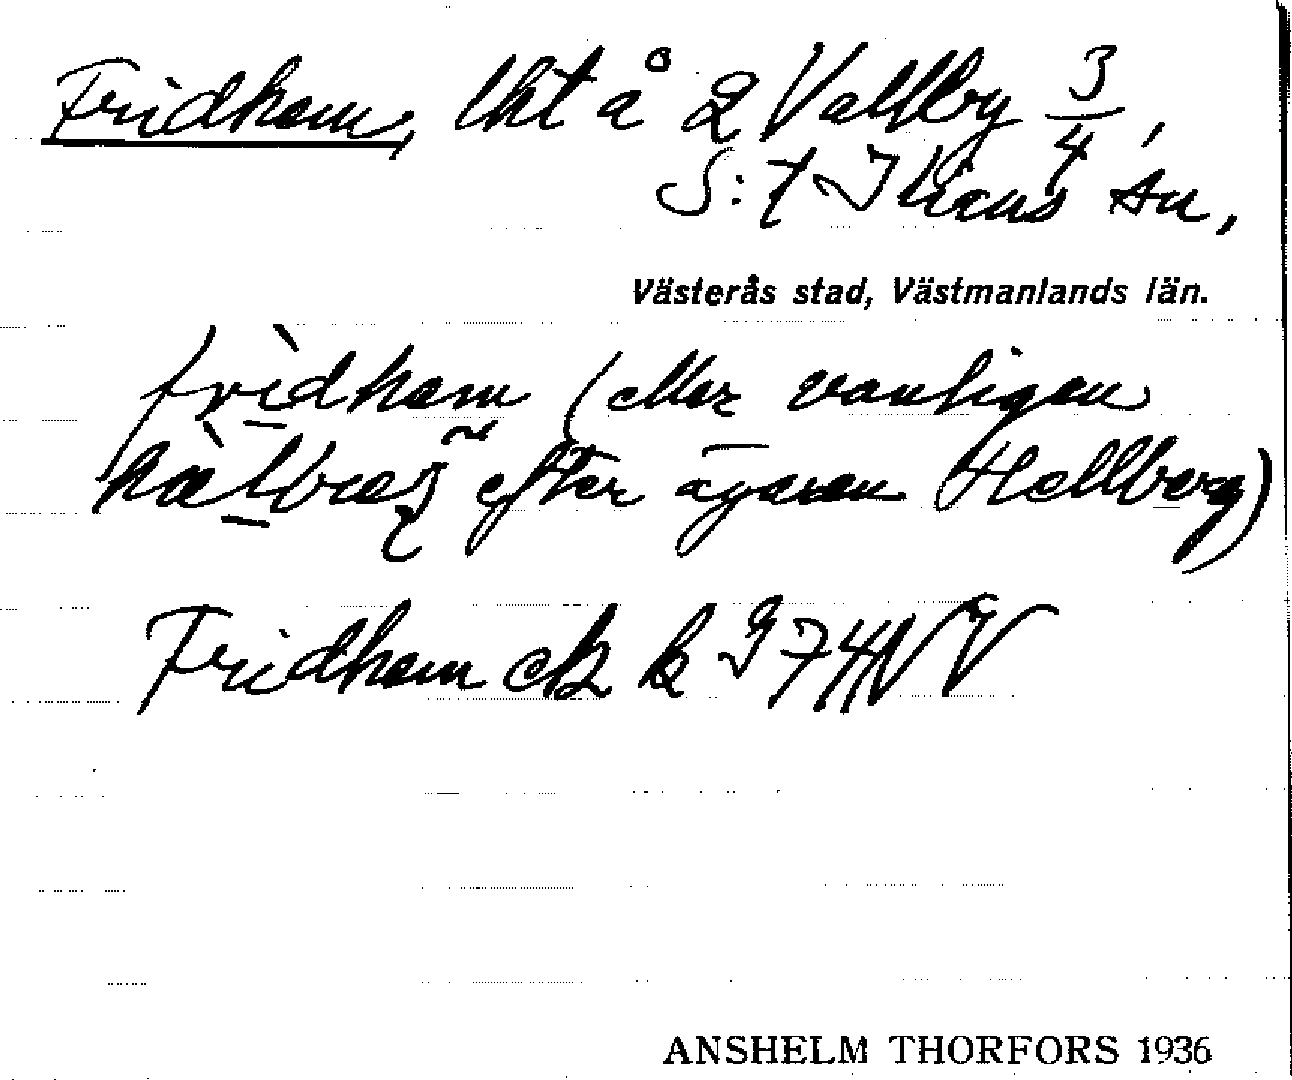 Fridhem, lht å 2 Vallby 3/4,
S:t Ilians sn,
Västerås stad, Västmanlands län.
frìdhem (eller vanligen
efter ägaren Hellberg)
Fridhem ek k J 74 NV
ANSHELM THORFORS 1936